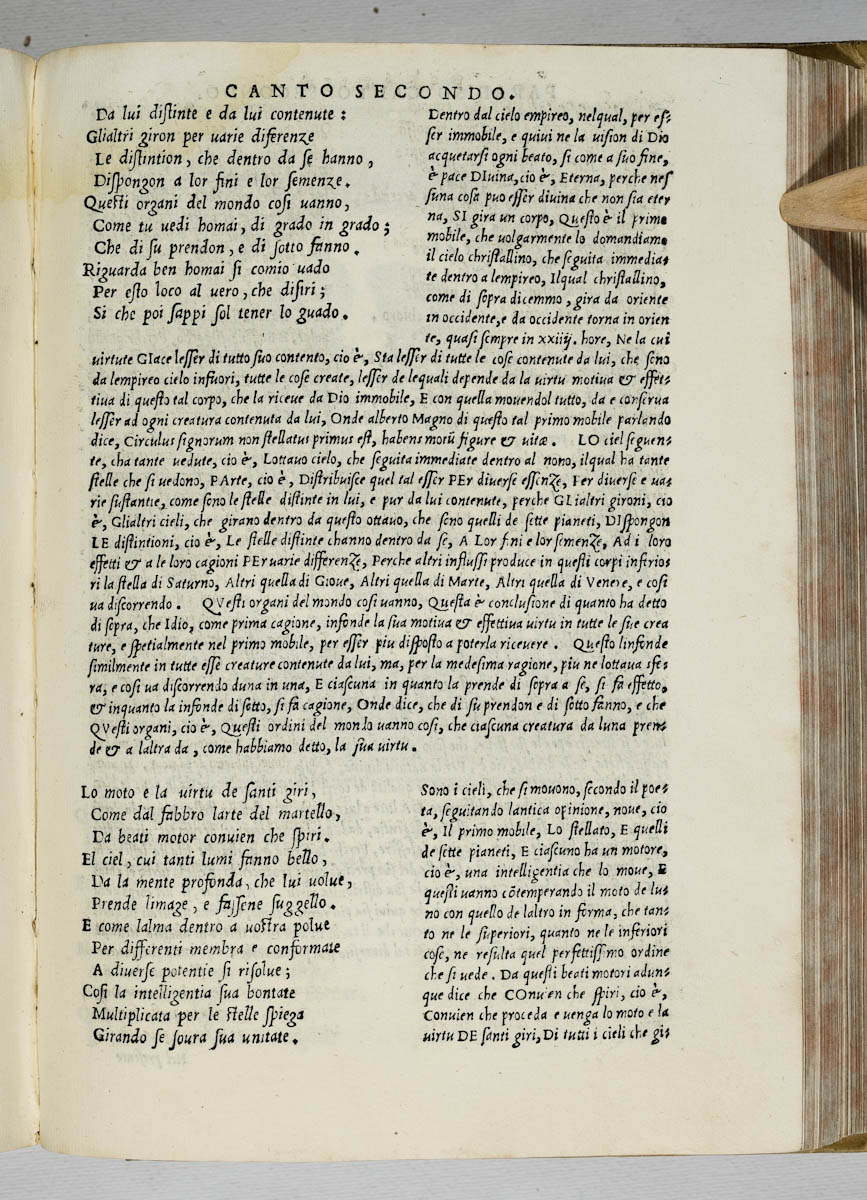 CANTO SECONDO.
Da lui distinte e da lui contenute :
Glialtri giron per uarie diferenze
Le distintion, che dentro da se hanno,
Dispongon a lor fini e lor semenze.
Questi organi del mondo cosi uanno,
Come tu uedi homai, di grado in grado;
Che di su prendon, e di sotto fanno.
Riguarda ben homai si comio uado
Per esto loco al uero, che disiri;
Si che poi sappi sol tener lo guado.
Dentro dal cielo empireo, nelqual, per es-
ser immobile, e quiui ne la uision di Dio
acquetarsi ogni beato, si come a suo fine,
è pace DIuina, cio è, Eterna, perche nes
suna cosa puo esser diuina che non sia eter
na, SI gira un corpo, Questo è il primo
mobile, che uolgarmente lo domandiamo
il cielo christallino, che seguita immedia-
te dentro a lempireo, Ilqual christallino,
come di sopra dicemmo, gira da oriente
in occidente, e da occidente torna in orien
te, quasi sempre in xxiiij. hore, Ne la cui
uirtute GIace lesser di tutto suo contento, cio è, Sta lesser di tutte le cose contenute da lui, che sono
da lempireo cielo infuori, tutte le cose create, lesser de lequali depende da la uirtu motiua & effet-
tiua di questo tal corpo, che la riceue da Dio immobile, E con quella mouendol tutto, da e conserua
lesser ad ogni creatura contenuta da lui, Onde alberto Magno di questo tal primo mobile parlando
dice, Circulus signorum non stellatus primus est, habens motū figure & uitæ. LO ciel seguen-
te, cha tante uedute, cio è, Lottauo cielo, che seguita immediate dentro al nono, ilqual ha tante
stelle che si uedono, PArte, cio è, Distribuisce quel tal esser PEr diuerse essenze, Per diuerse e ua-
rie sustantie, come sono le stelle distinte in lui, e pur da lui contenute, perche GLialtri gironi, cio
è, Glialtri cieli, che girano dentro da questo ottauo, che sono quelli de sette pianeti, DIspongon
LE distintioni, cio è, Le stelle distinte channo dentro da se, A Lor fini e lor semenze, Ad i loro
effetti & a le loro cagioni PEr uarie differenze, Perche altri influssi produce in questi corpi inferio-
ri la stella di Saturno, Altri quella di Gioue, Altri quella di Marte, Altri quella di Venere, e cosi
ua discorrendo. QVesti organi del mondo cosi uanno, Questa è conclusione di quanto ha detto
di sopra, che Idio, come prima cagione, infonde la sua motiua & effettiua uirtu in tutte le sue crea
ture, e spetialmente nel primo mobile, per esser piu disposto a poterla riceuere. Questo linfonde
similmente in tutte esse creature contenute da lui, ma, per la medesima ragione, piu ne lottaua sfe-
ra, e cosi ua discorrendo duna in una, E ciascuna in quanto la prende di sopra a se, si fa effetto,
& inquanto la infonde di sotto, si fa cagione, Onde dice, che di su prendon e di sotto fanno, e che
QVesti organi, cio è, Questi ordini del mondo uanno cosi, che ciascuna creatura da luna pren-
de & a laltra da, come habbiamo detto, la sua uirtu.
Lo moto e la uirtu de santi giri,
Come dal fabbro larte del martello,
Da beati motor conuien che spiri.
El ciel, cui tanti lumi fanno bello,
Da la mente profonda, che lui uolue,
Prende limage, e fassene suggello.
E come lalma dentro a uostra polue
Per differenti membra e conformate
A diuerse potentie si risolue;
Cosi la intelligentia sua bontate
Multiplicata per le stelle spiega
Girando se soura sua unitate.
Sono i cieli, che si mouono, secondo il poe-
ta, seguitando lantica opinione, noue, cio
è, Il primo mobile, Lo stellato, E quelli
de sette pianeti, E ciascuno ha un motore,
cio è, una intelligentia che lo moue, E
questi uanno cōtemperando il moto de lu-
no con quello de laltro in forma, che tan-
to ne le superiori, quanto ne le inferiori
cose, ne resulta quel perfettissimo ordine
che si uede. Da questi beati motori adun-
que dice che COnuien che spiri, cio è,
Conuien che proceda e uenga lo moto e la
uirtu DE santi giri, Di tutti i cieli che gi-